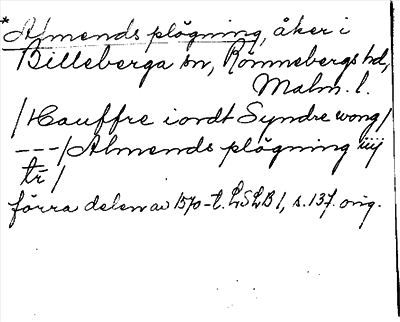 *Almends plögning, åker i
Billeberga sn, Rönnebergs hd,
Malm. l.
/Hauffre iordt Syndre wong/
---/Almends plögning iiij
tr /
förra delen av 1570-t. LSLB 1, s. 137. orig.